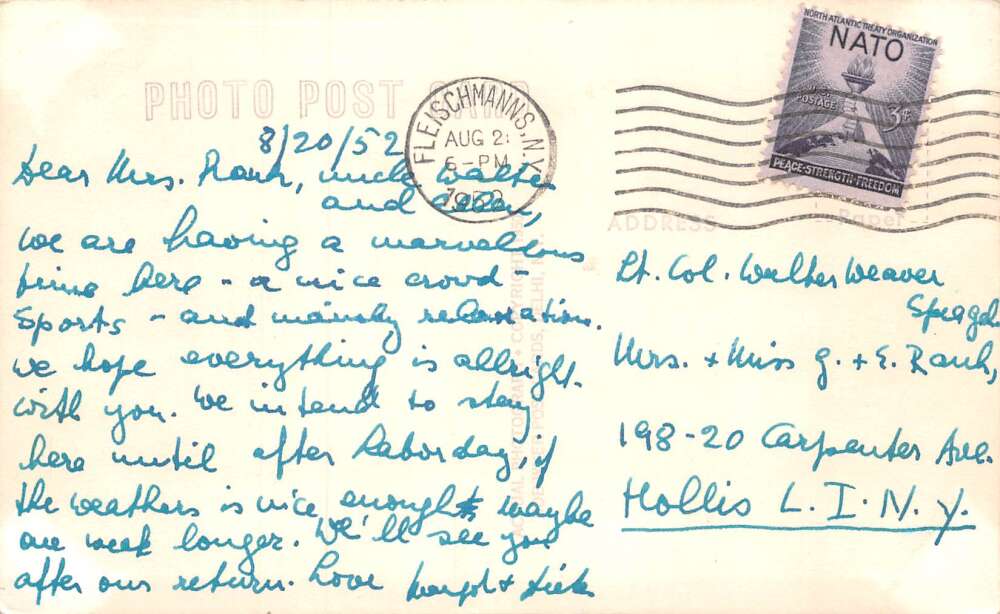 PHOTO POST CARD
8/20/52
Dear Mrs. Rauh, uncle Walter
and
we are having a marvellous
time here - a nice crowd -
Sports - and mainly relaxation.
we hope everything is allright
with you. We intend to stay
here until after Laborday, if
the weathers is nice enough maybe
one week longer. We'll see you
after our return. Love &
FLEISCHMANNS, N.Y.
AUG 2
6-PM
1952
NORTH ATLANTIC TREATY ORGANIZATION
NATO
U.S. POSTAGE
3¢
PEACE-STRENGTH-FREEDOM
ADDRESS
Paper
Lt. Col. Walter Weaver
Mrs. + Miss G. + E. Rauh,
198-20 Carpenter Ave.
Hollis L. I. N. Y.